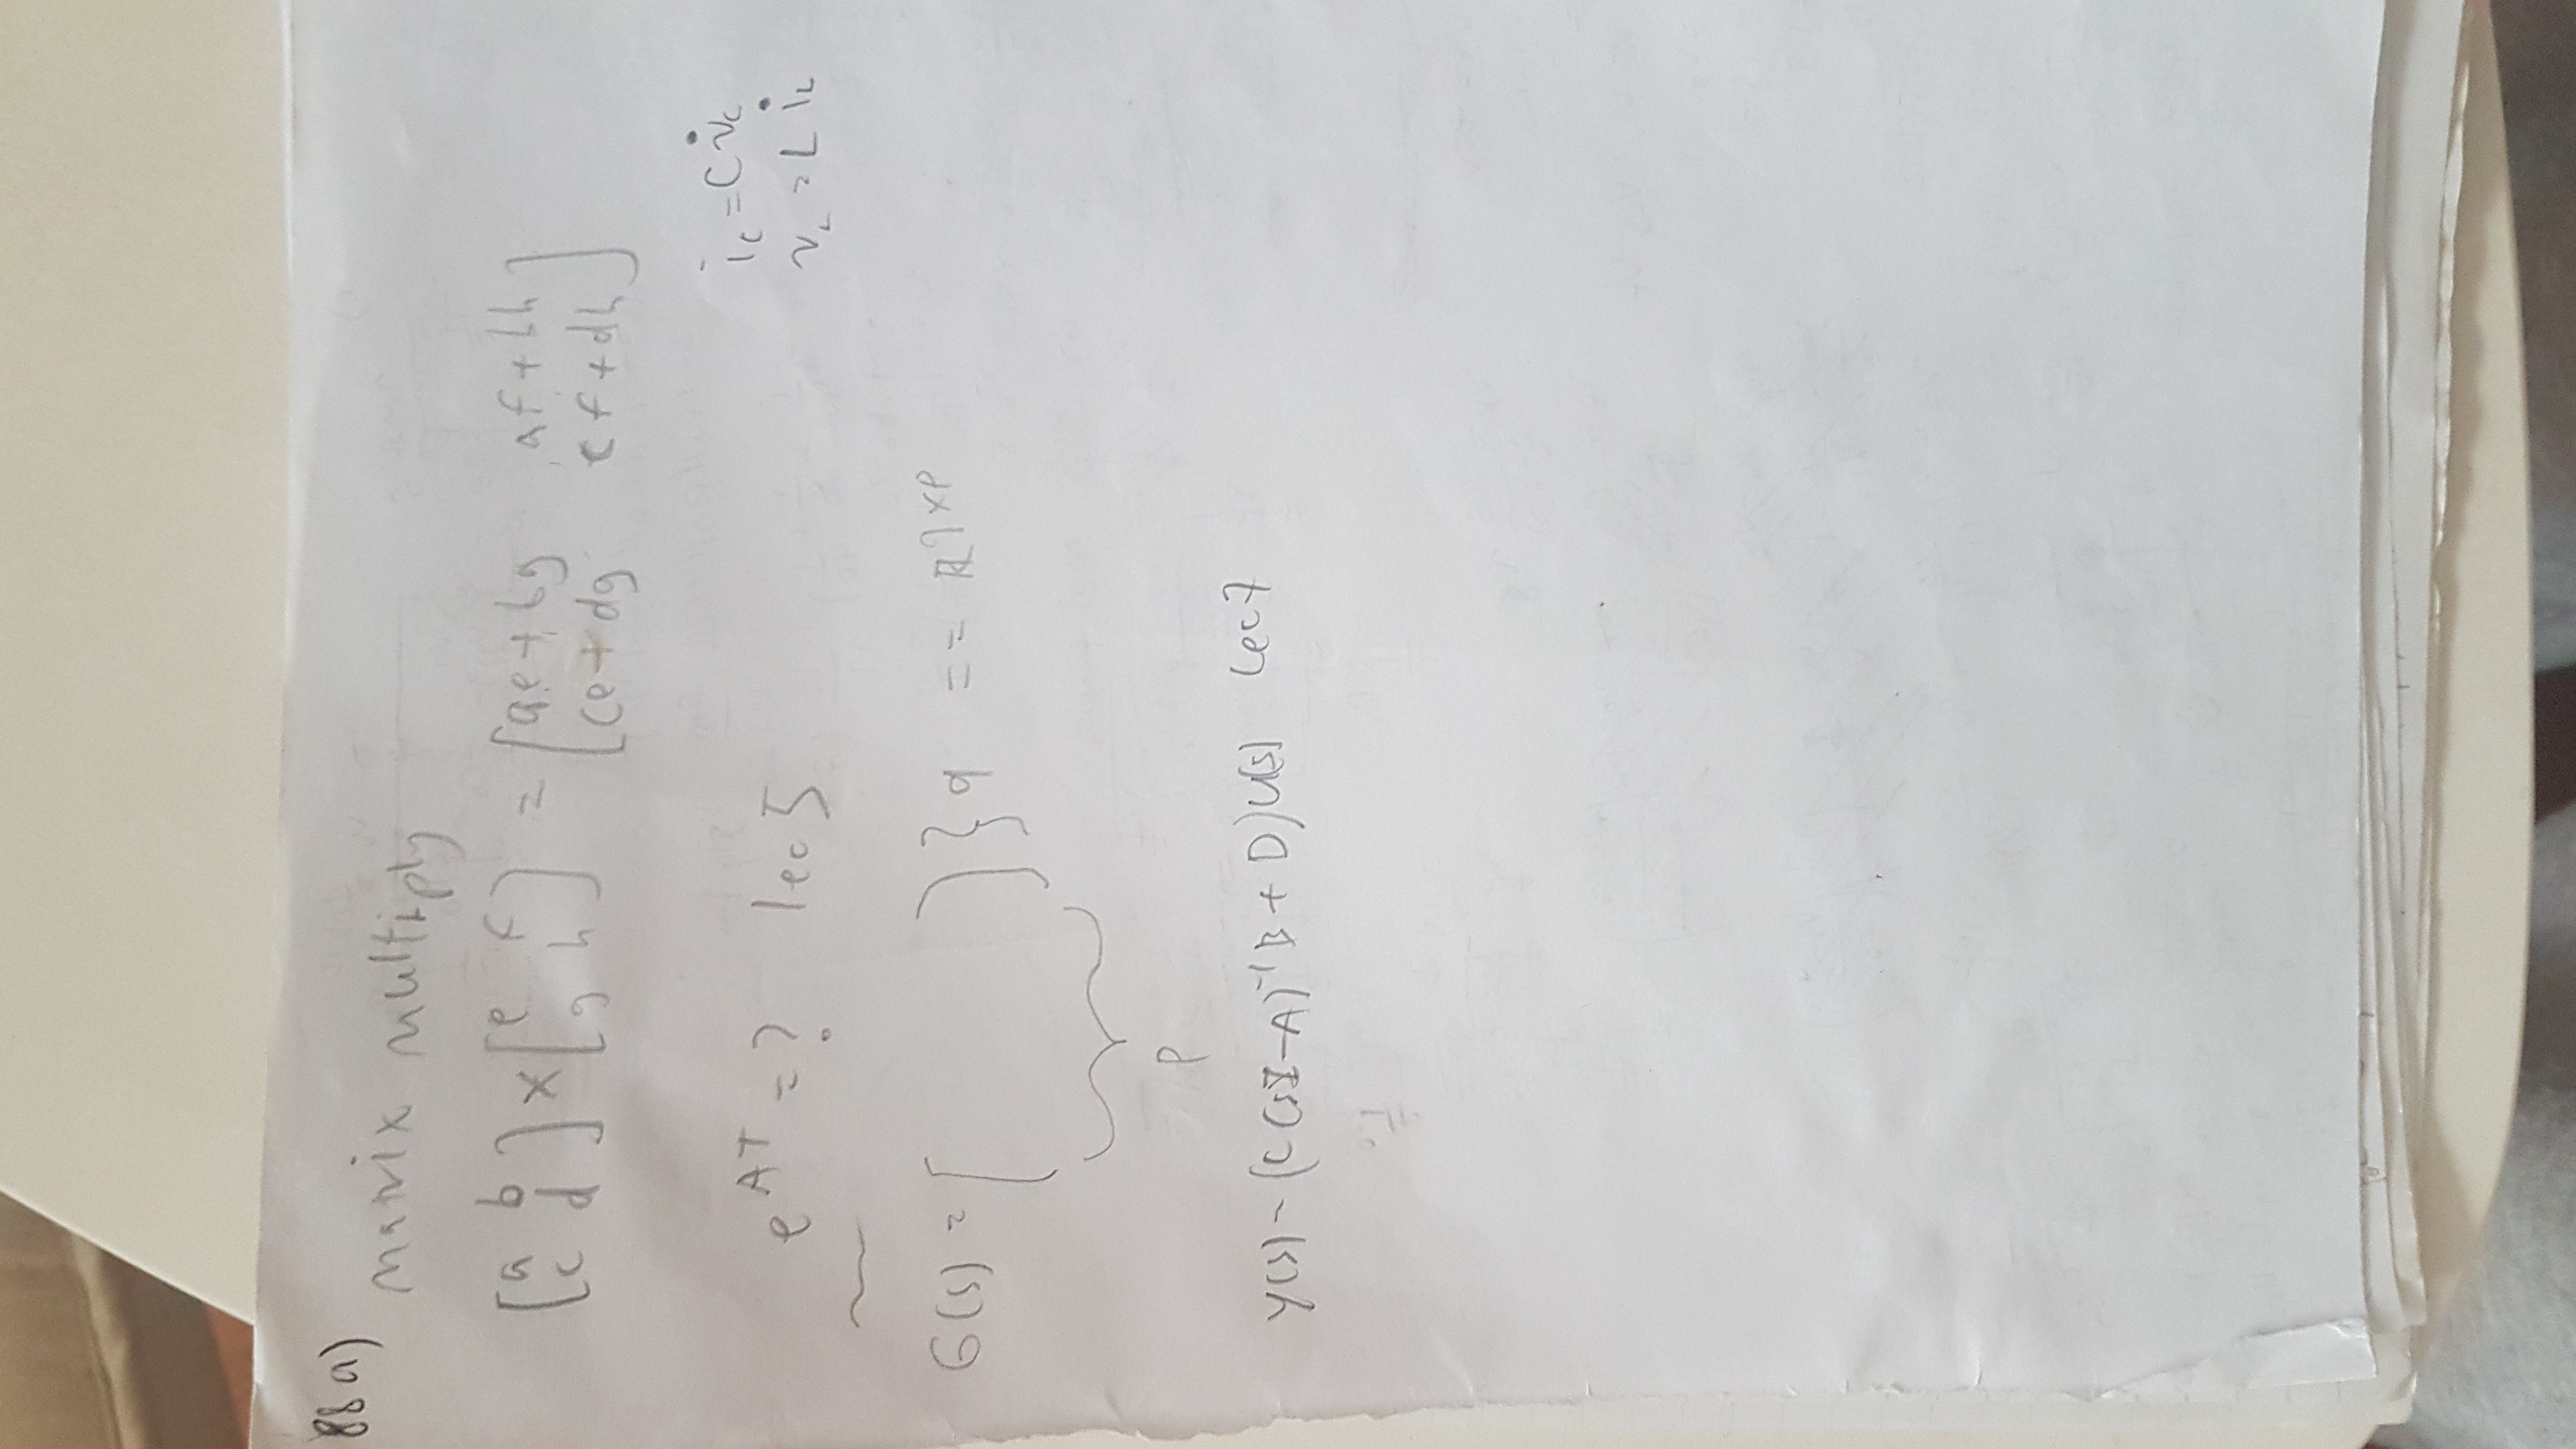 88 a)
matrix multiply
[a b
c d] × [e f
g h] = [ae+bg af+bh
ce+dg cf+dh]
i_c = C v̇_c
v_L = L i̇_L
e^{AT} = ? lec 5
G(s) = [ ] } q == ℝ^{q×p}
p
Y(s) = (C(sI-A)^{-1}B + D)U(s) lec 7